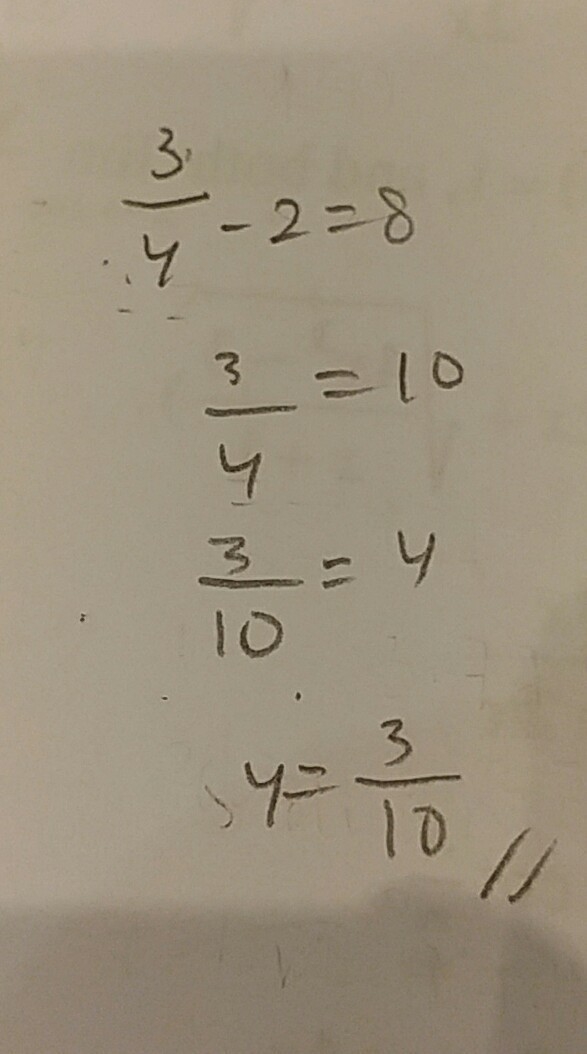 3/y - 2 = 8
3/y = 10
3/10 = y
y = 3/10 //